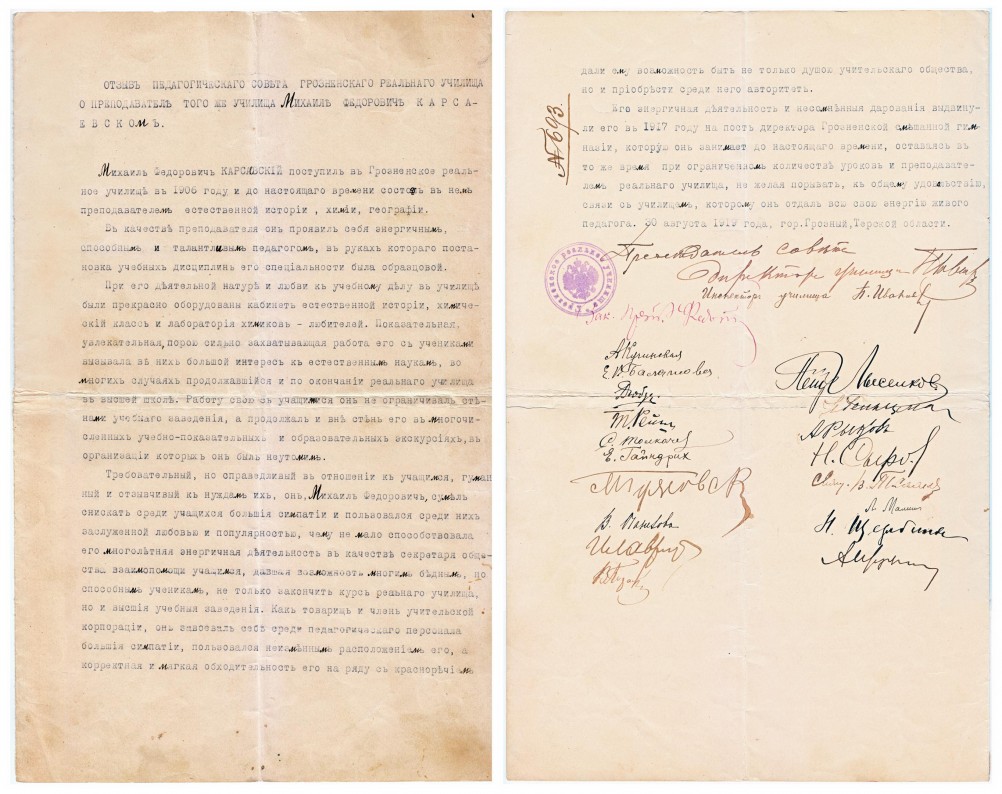 ОТЗЫВЪ ПЕДАГОГИЧЕСКАГО СОВѢТА ГРОЗНЕНСКАГО РЕАЛЬНАГО УЧИЛИЩА
О ПРЕПОДАВАТЕЛѢ ТОГО ЖЕ УЧИЛИЩА МИХАИЛѢ ФЕДОРОВИЧѢ КАРСА-
ЕВСКОМЪ.
Михаилъ Федоровичъ КАРСАВСКІЙ поступилъ въ Грозненское реаль-
ное училищѣ въ 1906 году и до настоящаго времени состоя въ немъ
преподавателемъ естественной исторіи, химіи, географіи.
Въ качествѣ преподавателя онъ проявилъ себя энергичнымъ,
способнымъ и талантливымъ педагогомъ, въ рукахъ котораго поста-
новка учебныхъ дисциплинъ его спеціальности была образцовой.
При его дѣятельной натурѣ и любви къ учебному дѣлу въ училищѣ
были прекрасно оборудованы кабинетъ естественной исторіи, химиче-
скій классъ и лабораторія химиковъ - любителей. Показательная,
увлекательная, порою сильно захватывающая работа его съ учениками
вызывала въ нихъ большой интересъ къ естественнымъ наукамъ, во
многихъ случаяхъ продолжавшійся и по окончаніи реальнаго училища
въ высшей школѣ. Работу свою съ учащимися онъ не ограничивалъ стѣ-
нами учебнаго заведенія, а продолжалъ и внѣ стѣнъ его въ многочи-
сленныхъ учебно-показательныхъ и образовательныхъ экскурсіяхъ, въ
организаціи которыхъ онъ былъ неутомимъ.
Требовательный, но справедливый въ отношеніи къ учащимся, гуман
ный и отзывчивый къ нуждамъ ихъ, онъ, Михаилъ Федоровичъ, сумѣлъ
снискать среди учащихся большія симпатіи и пользовался среди нихъ
заслуженной любовью и популярностью, чему не мало способствовала
его многолѣтняя энергичная дѣятельность въ качествѣ секретаря обще-
ства взаимопомощи учащимся, давшая возможность многимъ бѣднымъ, но
способнымъ ученикамъ, не только закончить курсъ реальнаго училища,
но и высшія учебныя заведенія. Какъ товарищъ и членъ учительской
корпораціи, онъ завоевалъ себѣ среди педагогическаго персонала
большія симпатіи, пользовался неизмѣннымъ расположеніемъ его, а
корректная и мягкая обходительность его на ряду съ краснорѣчіемъ
дали ему возможность быть не только душою учительскаго общества,
но и пріобрѣсти среди него авторитетъ.
Его энергичная дѣятельность и несомнѣнныя дарованія выдвину-
ли его въ 1917 году на постъ директора Грозненской смѣшанной гим-
назіи, которую онъ занимаетъ до настоящаго времени, оставаясь въ
то же время при ограниченномъ количествѣ уроковъ и преподавате-
лемъ реальнаго училища, не желая порывать, къ общему удовольствію,
связи съ училищемъ, которому онъ отдалъ всю свою энергію живого
педагога. 30 августа 1919 года, гор.Грозный, Терской области.
№ 693.
Предсѣдатель совѣта
Директоръ училища
Инспекторъ училища П. Ивановъ
Зак.
С. Толкачевъ
Е. Гайндрих
Петръ Лысенковъ
А Рыковъ
Л. Малкин
Н. Щербина